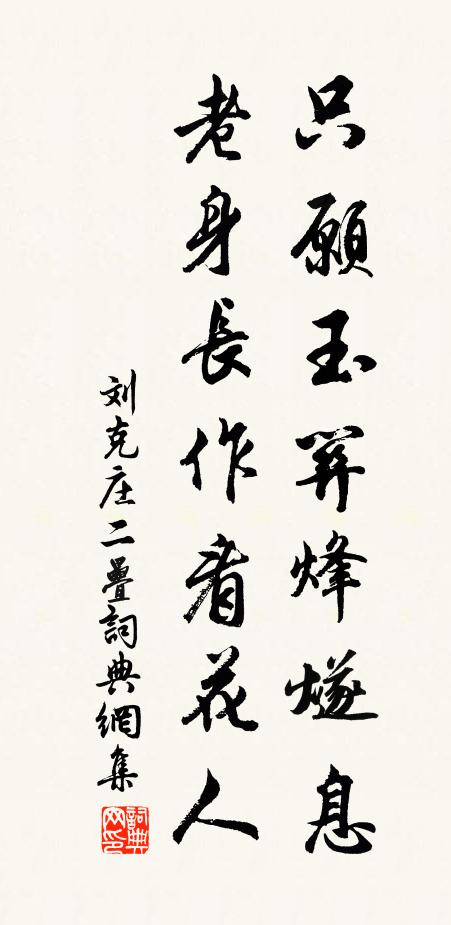 只願玉關烽燧息
老身長作看花人
刘克庄二疊詞典網集
詞典网印